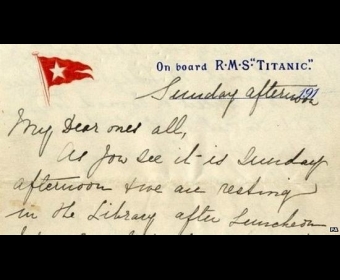 On board R·M·S·"TITANIC."
Sunday afternoon 191
My Dear ones all,
As you see it is Sunday
afternoon & we are resting
in the Library after Luncheon
PA